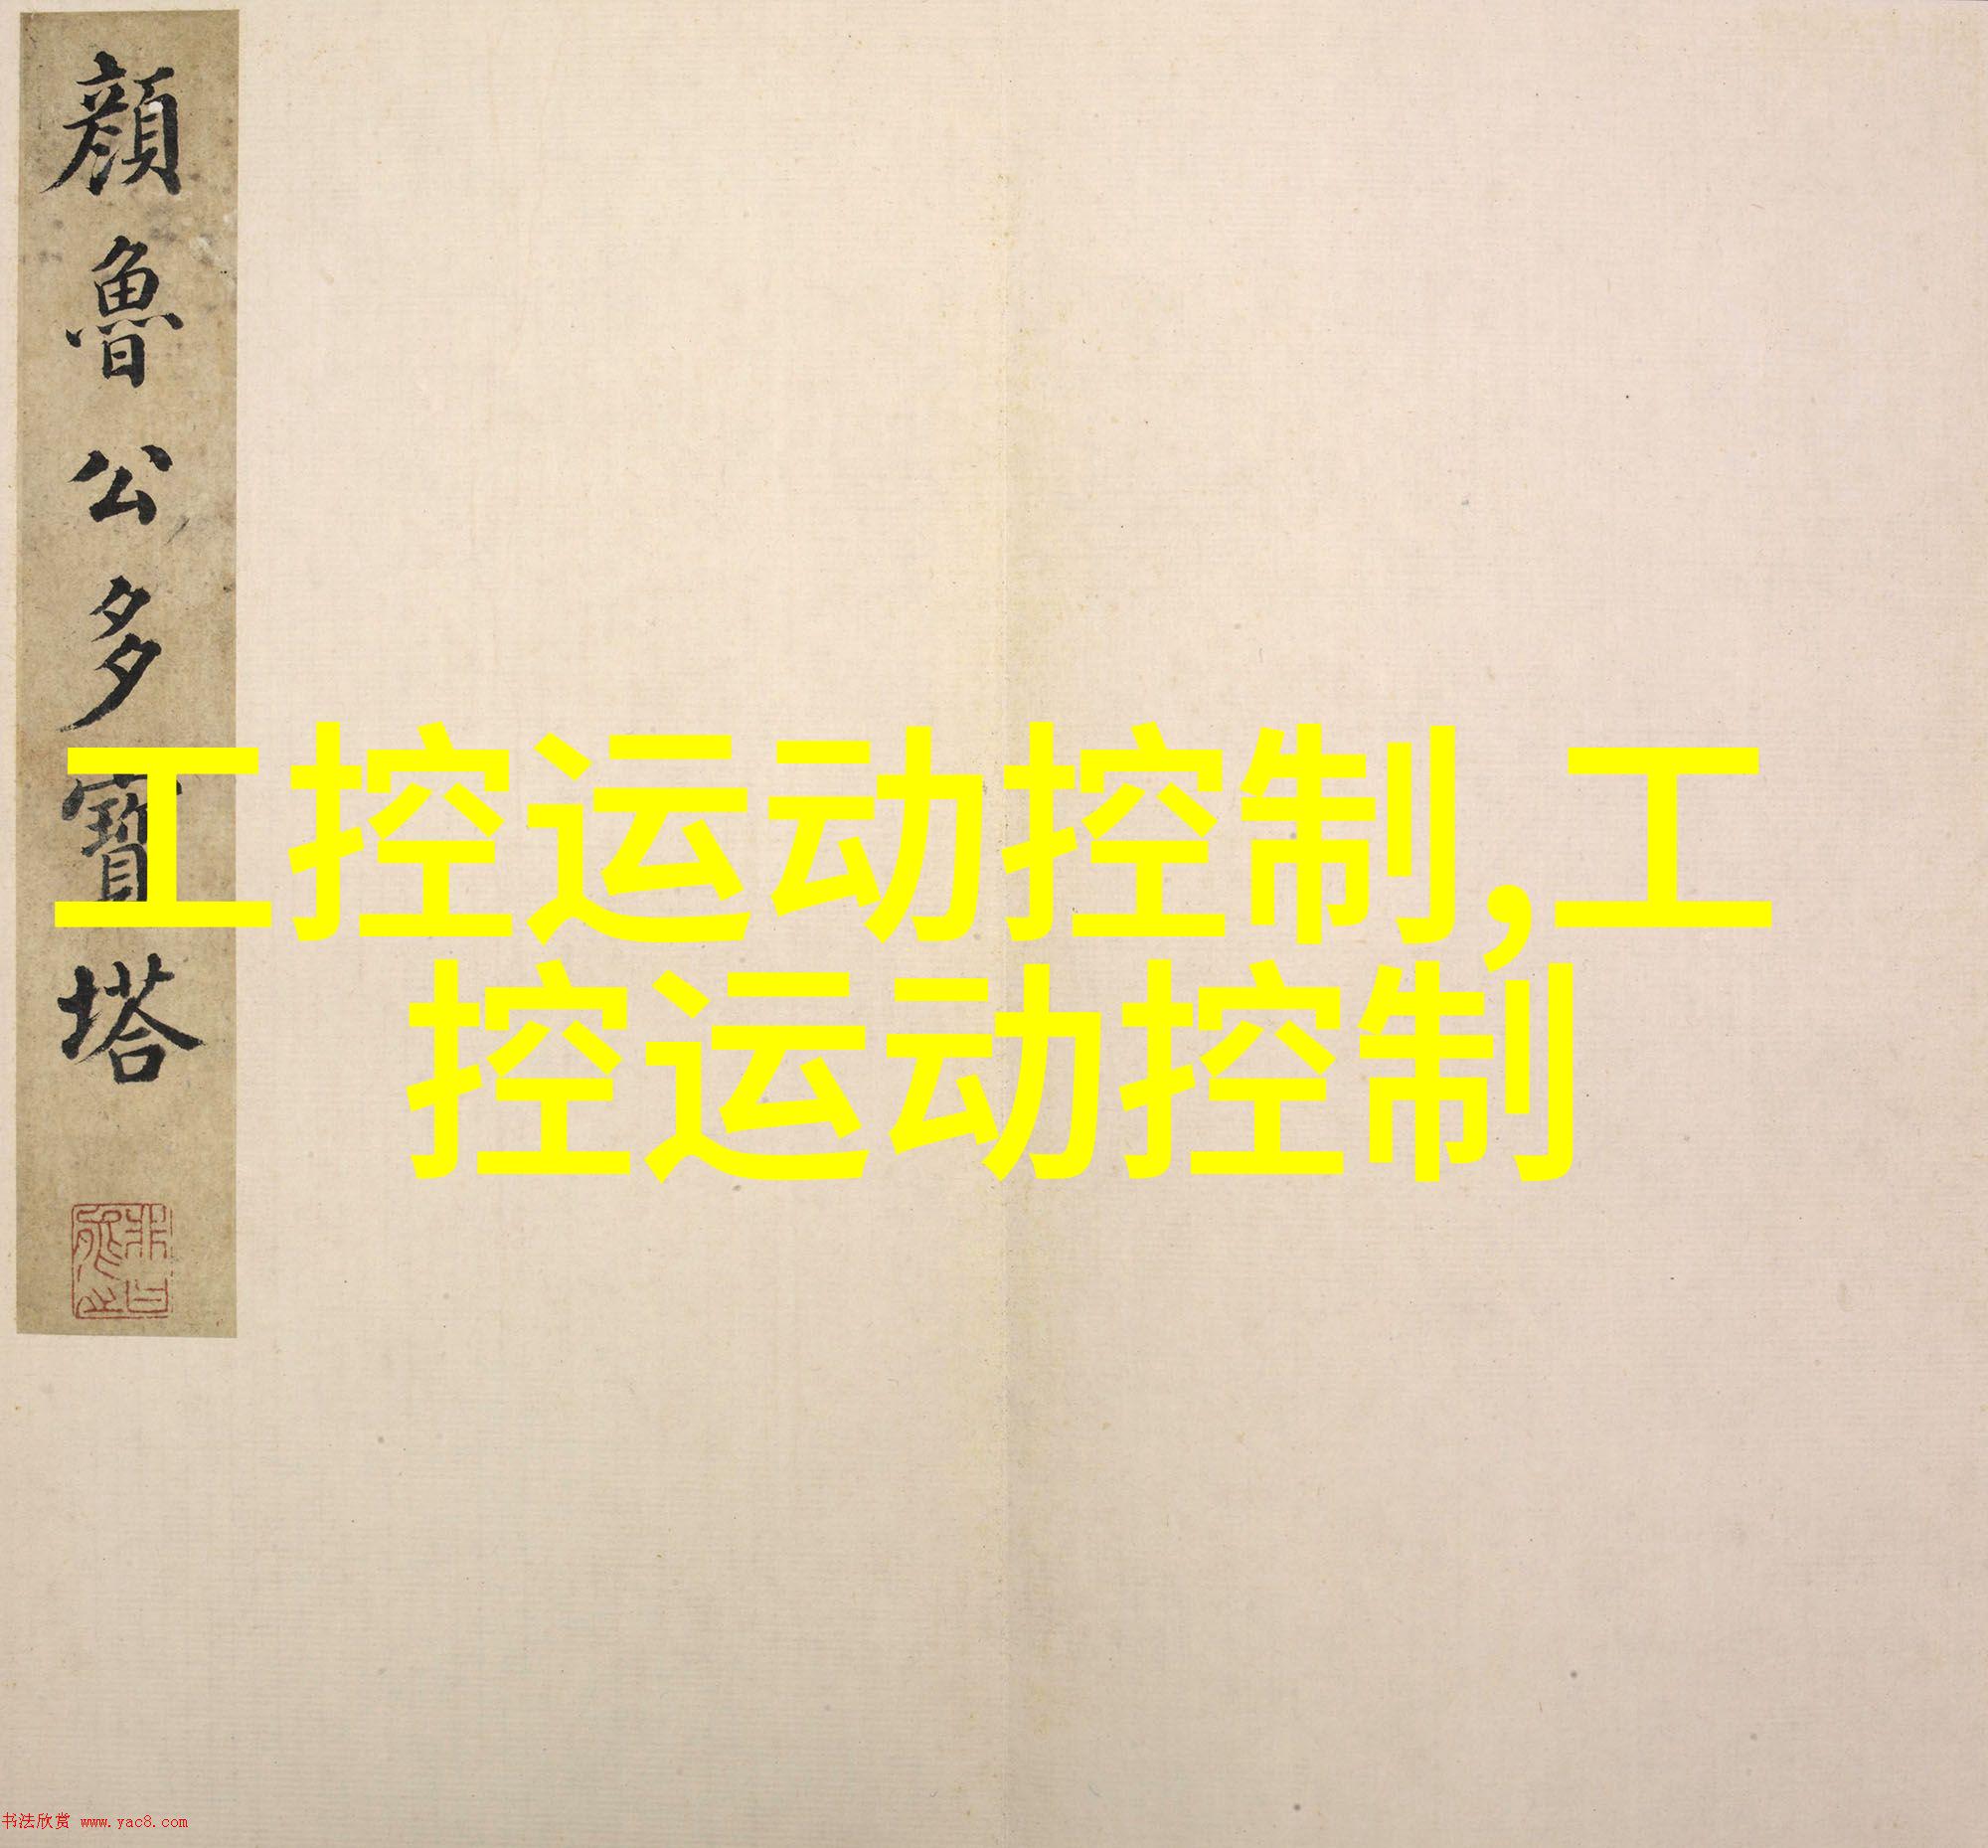 顏魯公多寶塔
工控运动控制,工
控运动控制
书法欣赏 www.yac8.com